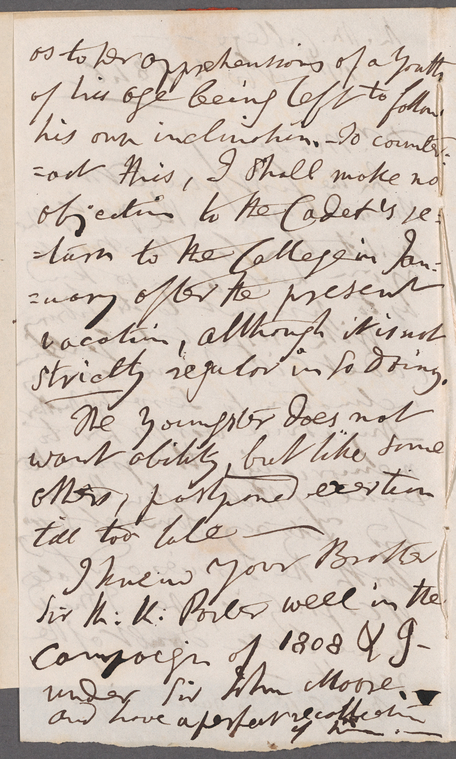 as to her apprehensions of a Youth
of his age being left to follow
his own inclination. - To counter=
=act this, I shall make no
objection to the Cadet's re=
=turn to the College in Jan=
=uary after the present
vacation, although it is not
strictly regular in so doing.
The Youngster does not
want ability, but like some
others, postponed exertion
till too late —
I knew your Brother
Sir R: K: Porter well in the
Campaign of 1808 & 9 -
under Sir John Moore.
and have a perfect recollection
of him. —